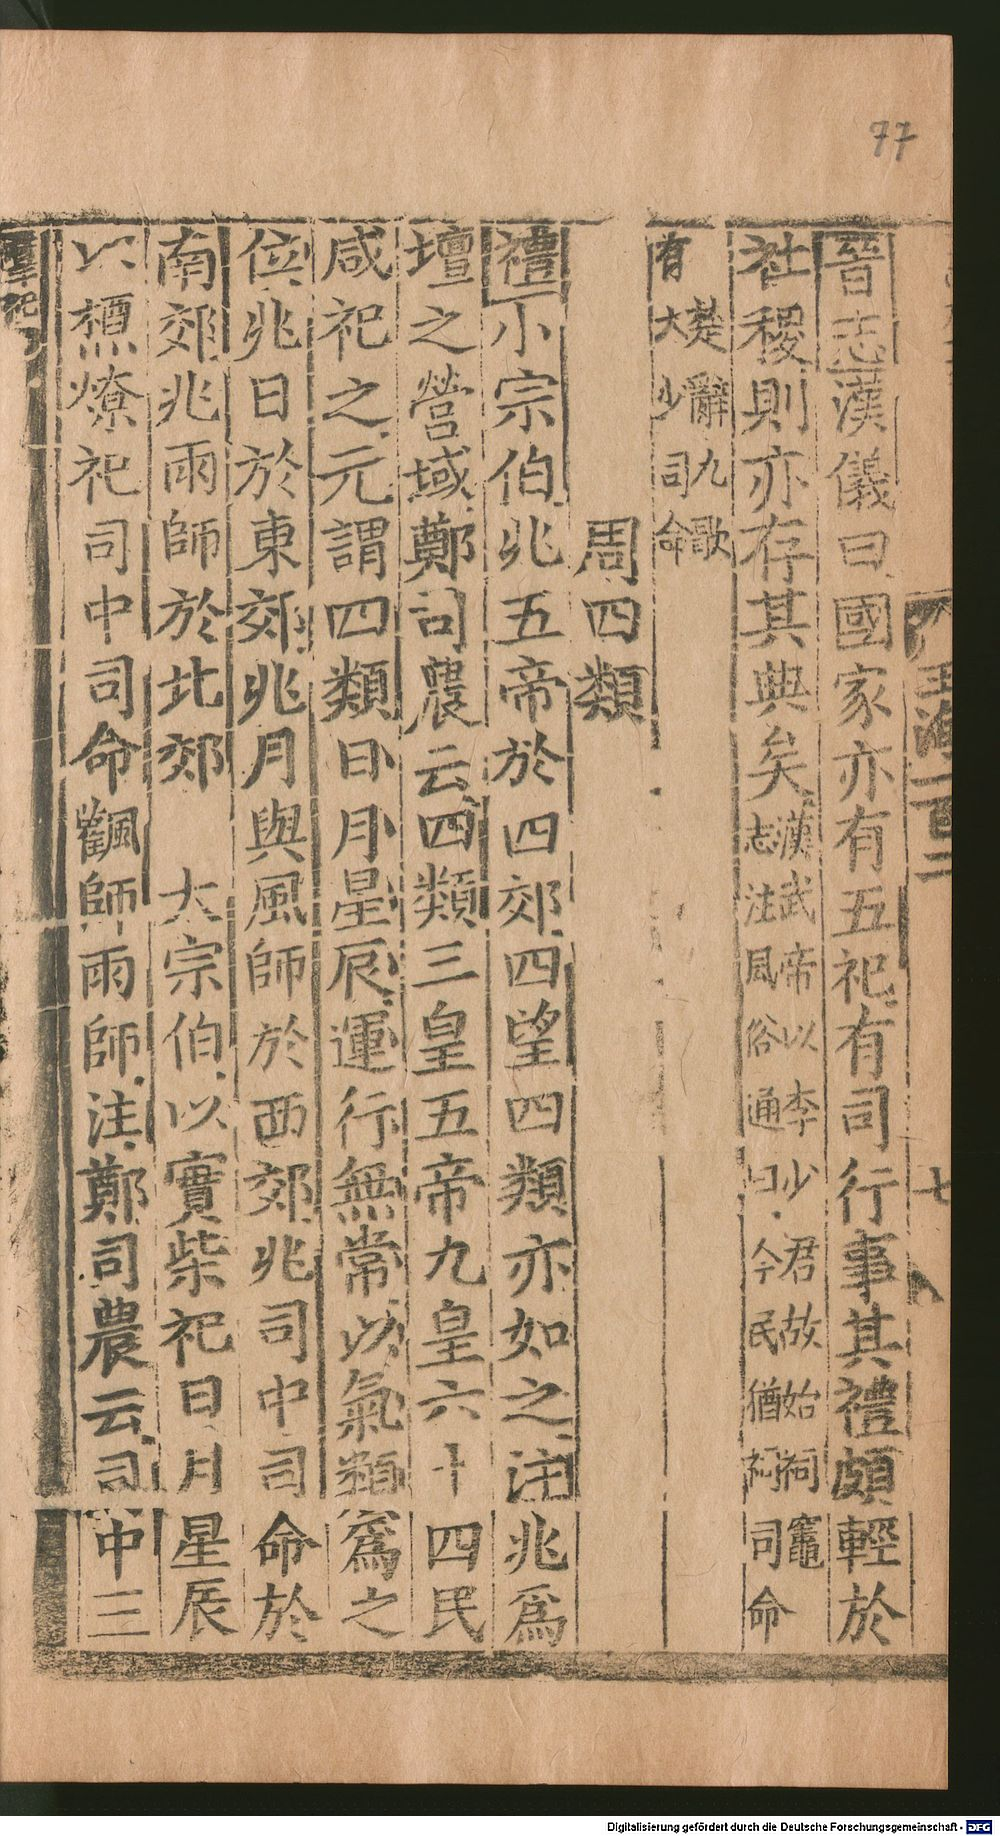 77
玉海一百二
七
晉志漢儀曰國家亦有五祀有司行事其禮頗輕於
社稷則亦存其典矣漢武帝以李少君故始祠竈
志注風俗通曰今民猶祠司命
楚辭九歌
有大少司命
周四類
禮小宗伯兆五帝於四郊四望四類亦如之注兆爲
壇之營域鄭司農云四類三皇五帝九皇六十四民
咸祀之元謂四類日月星辰運行無常以氣類爲之
位兆日於東郊兆月與風師於西郊兆司中司命於
南郊兆雨師於北郊　大宗伯以實柴祀日月星辰
以槱燎祀司中司命飌師雨師注鄭司農云司中三
羣祀
Digitalisierung gefördert durch die Deutsche Forschungsgemeinschaft - DFG